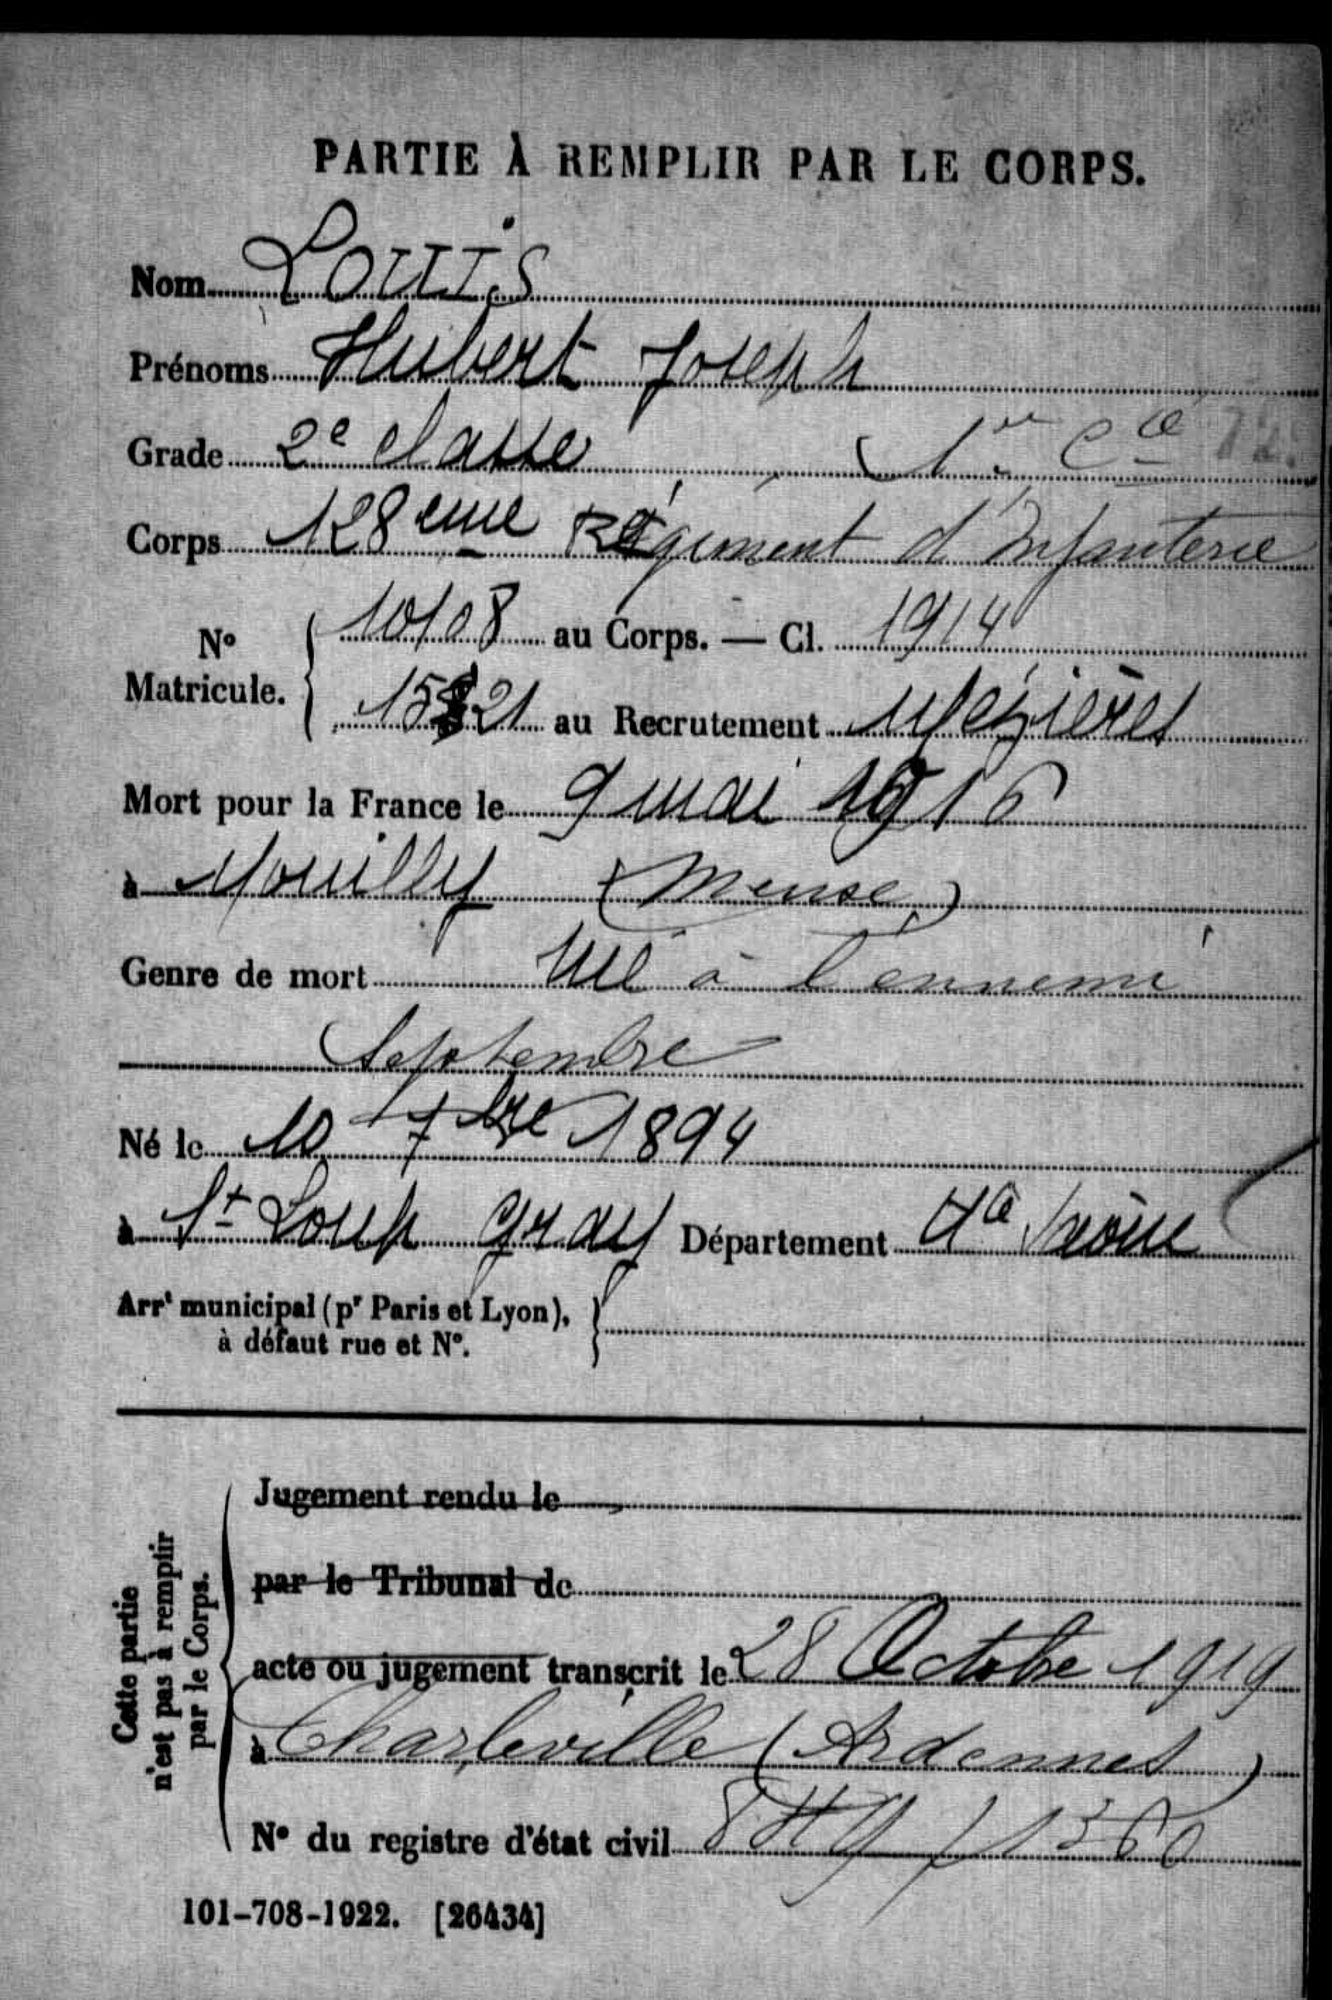 PARTIE À REMPLIR PAR LE CORPS.
Nom LOUIS
Prénoms Hubert Joseph
Grade 2e classe (1re Cie 12.
Corps 128eme Régiment d'Infanterie
No Matricule. { 10108 au Corps. — Cl. 1914
1521 au Recrutement Mézières
Mort pour la France le 9 mai 1916
à Mouilly (Meuse)
Genre de mort Tué à l'ennemi
Septembre
Né le 10 7bre 1894
à St Loup Gray Département Hte Saône
Arrt municipal (pr Paris et Lyon),
à défaut rue et No.
Cette partie
n'est pas à remplir
par le Corps.
Jugement rendu le
par le Tribunal de
acte ou jugement transcrit le 28 Octobre 1919
à Charleville (Ardennes)
No du registre d'état civil
101-708-1922. [26434]